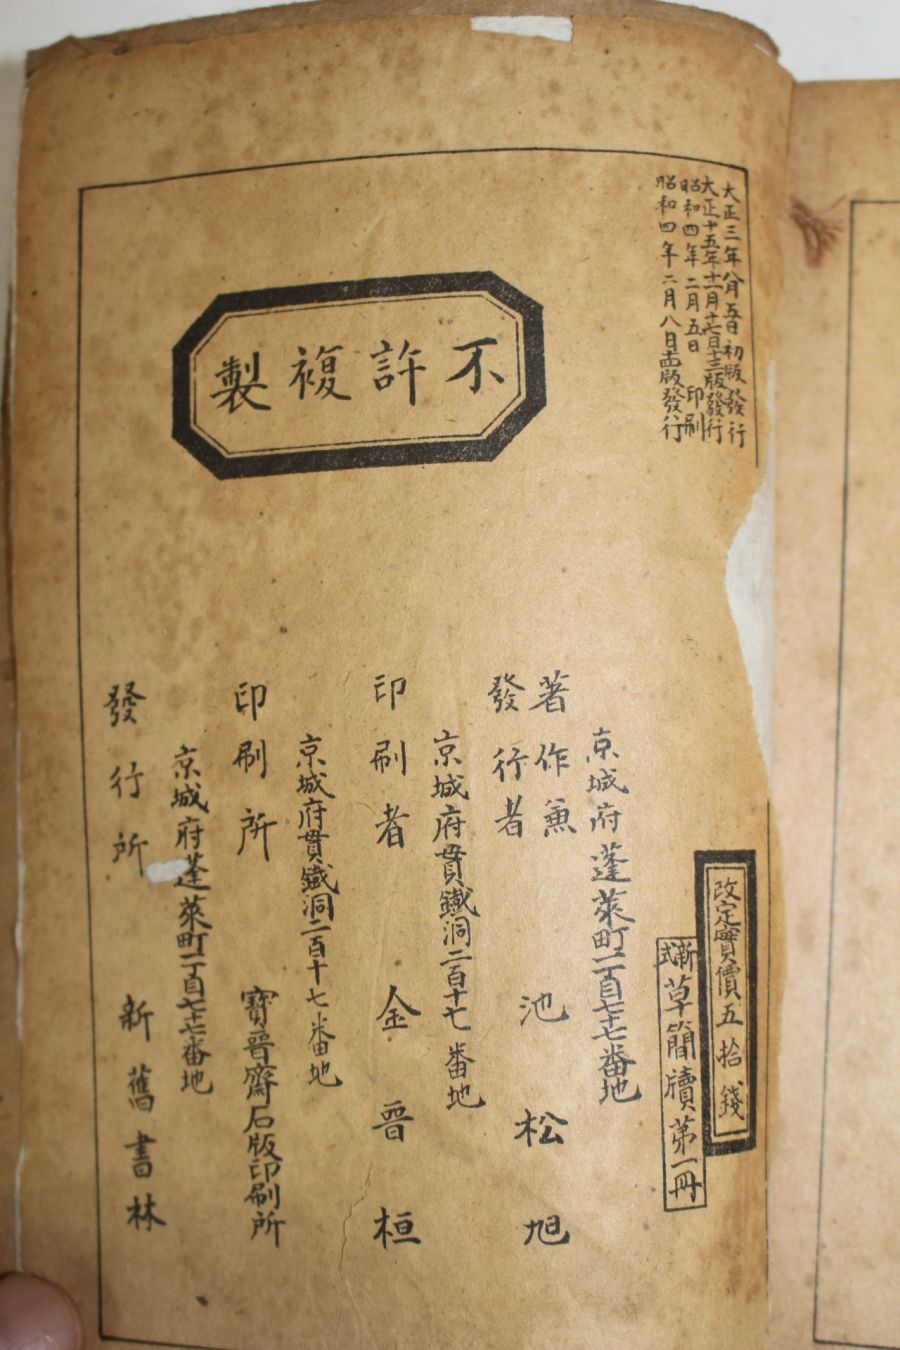 大正三年八月五日初版發行
大正十五年十一月十七日十三版發行
昭和四年二月五日印刷
昭和四年二月八日十四版發行
不許複製
改定實價五拾錢
新式草簡牘第一冊
京城府蓬萊町一丁目七十七番地
著作兼
發行者
池松旭
京城府貫鐵洞二百十七番地
印刷者 金晋桓
京城府貫鐵洞二百十七番地
印刷所 寶晋齋石版印刷所
京城府蓬萊町一丁目七十七番地
發行所 新舊書林